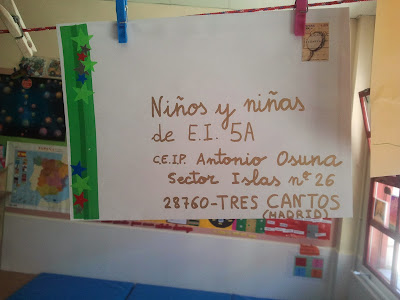 Niños y niñas
de E.I. 5A
C.E.I.P. Antonio Osuna
Sector Islas nº 26
28760-TRES CANTOS
(MADRID)